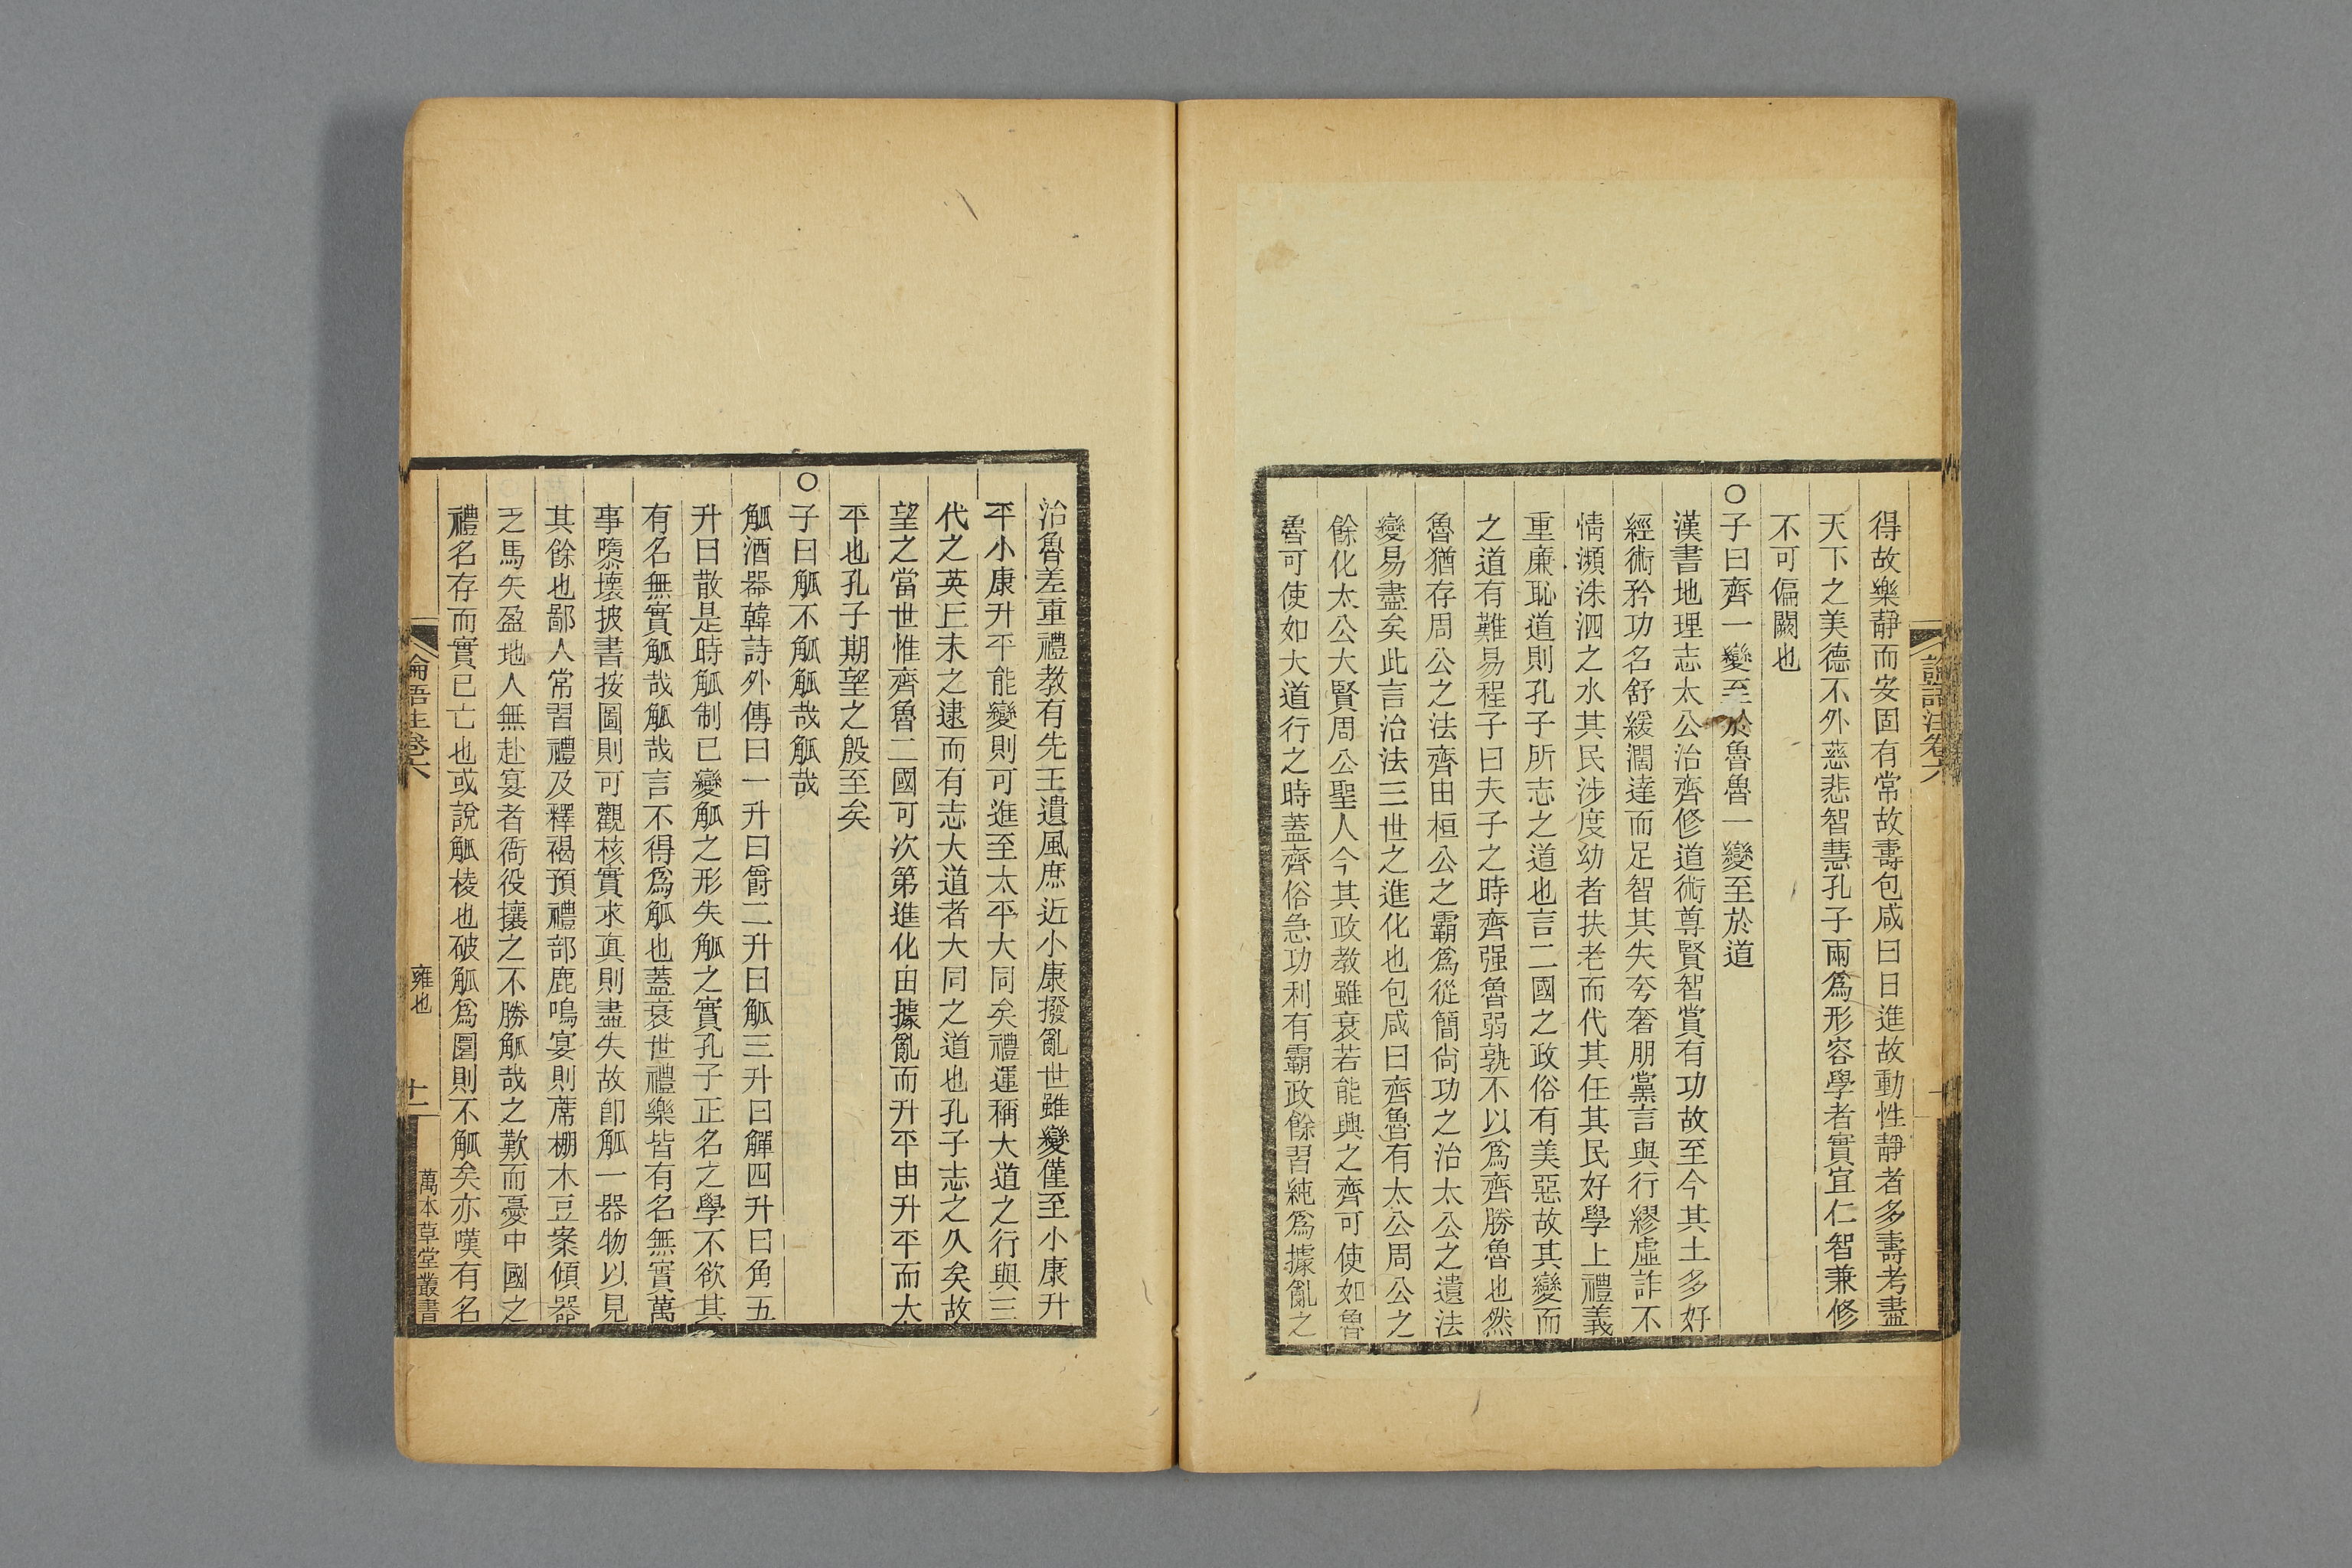 論語注卷六
得故樂靜而安固有常故壽包咸曰日進故動性靜者多壽考盡
天下之美德不外慈悲智慧孔子兩爲形容學者實宜仁智兼修
不可偏闕也
○子曰齊一變至於魯魯一變至於道
漢書地理志太公治齊修道術尊賢智賞有功故至今其土多好
經術矜功名舒緩濶達而足智其失夸奢朋黨言與行繆虛詐不
情瀕洙泗之水其民涉度幼者扶老而代其任其民好學上禮義
重廉恥道則孔子所志之道也言二國之政俗有美惡故其變而
之道有難易程子曰夫子之時齊强魯弱孰不以爲齊勝魯也然
魯猶存周公之法齊由桓公之霸爲從簡尙功之治太公之遺法
變易盡矣此言治法三世之進化也包咸曰齊魯有太公周公之
餘化太公大賢周公聖人今其政教雖衰若能興之齊可使如魯
魯可使如大道行之時蓋齊俗急功利有霸政餘習純爲據亂之
治魯差重禮教有先王遺風庶近小康撥亂世雖變僅至小康升
平小康升平能變則可進至太平大同矣禮運稱大道之行與三
代之英丘未之逮而有志大道者大同之道也孔子志之久矣故
望之當世惟齊魯二國可次第進化由據亂而升平由升平而太
平也孔子期望之殷至矣
○子曰觚不觚觚哉觚哉
觚酒器韓詩外傳曰一升曰爵二升曰觚三升曰觶四升曰角五
升曰散是時觚制已變觚之形失觚之實孔子正名之學不欲其
有名無實觚哉觚哉言不得爲觚也蓋衰世禮樂皆有名無實萬
事隳壞披書按圖則可觀核實求眞則盡失故卽觚一器物以見
其餘也鄙人常習禮及釋褐預禮部鹿鳴宴則蓆棚木豆案傾器
乏馬矢盈地人無赴宴者衙役攘之不勝觚哉之歎而憂中國之
禮名存而實已亡也或說觚棱也破觚爲圜則不觚矣亦嘆有名
論語注卷六
雍也
十一
萬木草堂叢書